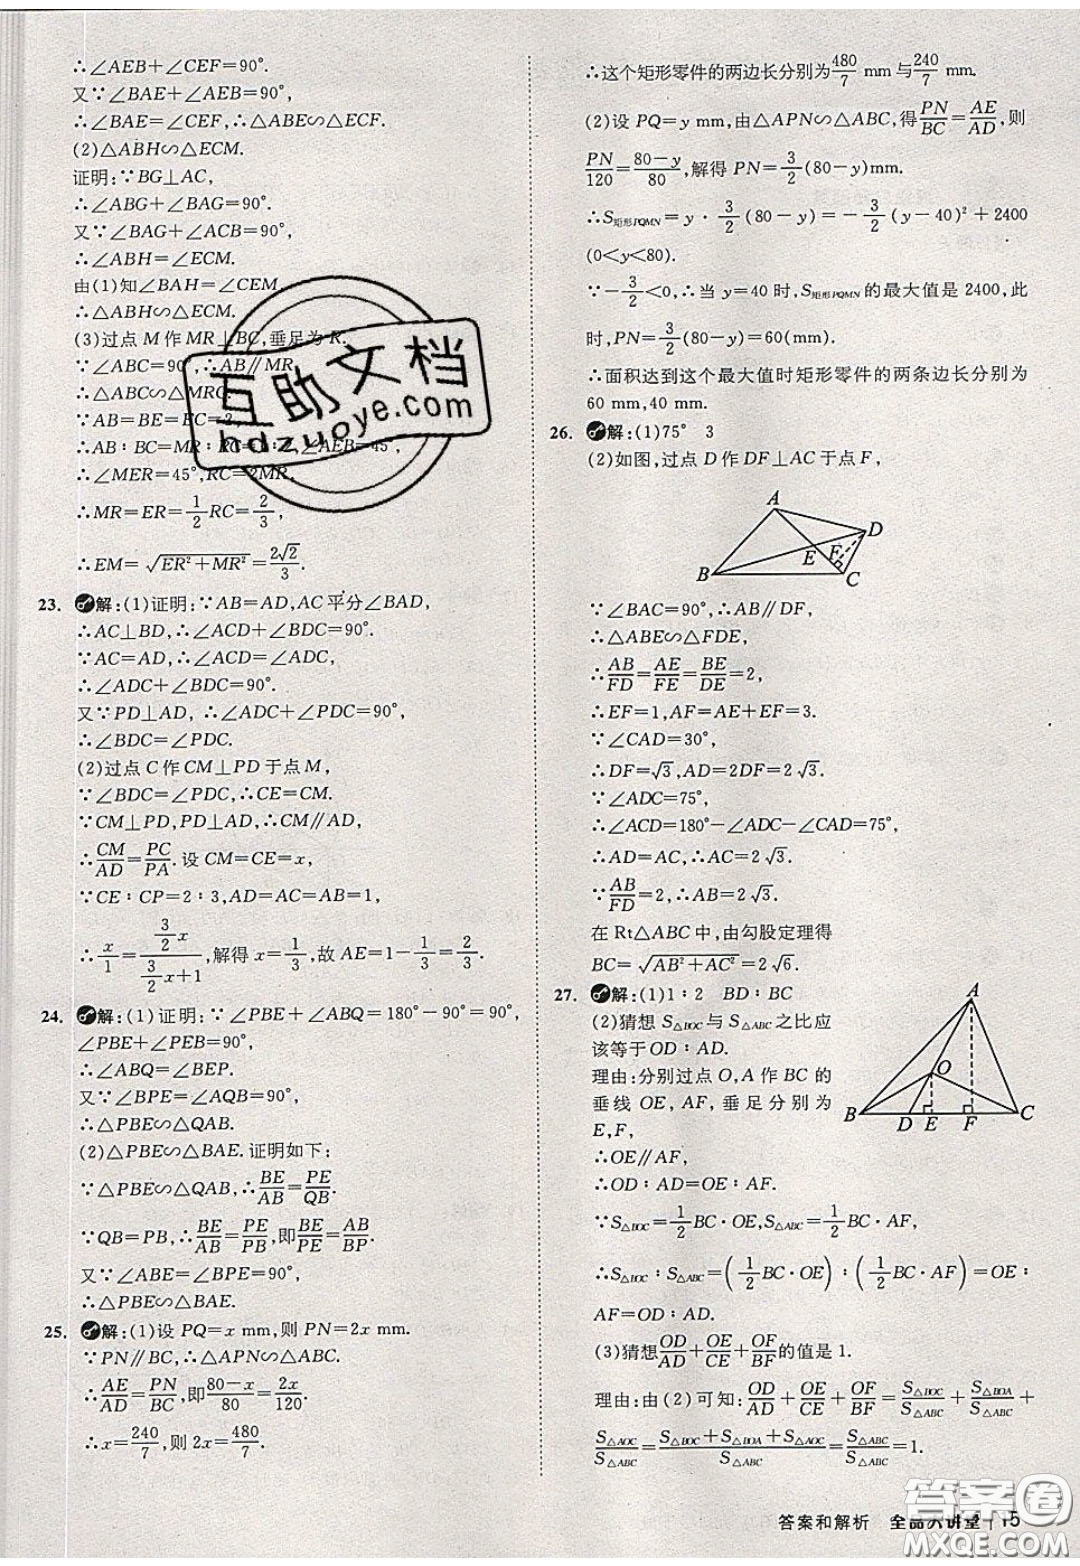 ∴∠AEB+∠CEF=90°.
又∵∠BAE+∠AEB=90°,
∴∠BAE=∠CEF,∴△ABE∽△ECF.
(2)△ABH∽△ECM.
证明:∵BG⊥AC,
∴∠ABG+∠BAG=90°.
又∵∠BAG+∠ACB=90°,
∴∠ABH=∠ECM.
由(1)知∠BAH=∠CEM,
∴△ABH∽△ECM.
(3)过点M作MR⊥BC,垂足为R.
∵∠ABC=90°,∴AB∥MR,
∴△ABC∽△MRC,
∵AB=BE=EC=2,
∴AB∶BC=MR∶RC=1∶2,∠AEB=45°,
∴∠MER=45°,RC=2MR,
∴MR=ER=1/2RC=2/3,
∴EM=√(ER²+MR²)=2√2/3.
23. 解:(1)证明:∵AB=AD,AC平分∠BAD,
∴AC⊥BD,∴∠ACD+∠BDC=90°.
∵AC=AD,∴∠ACD=∠ADC,
∴∠ADC+∠BDC=90°.
又∵PD⊥AD,∴∠ADC+∠PDC=90°,
∴∠BDC=∠PDC.
(2)过点C作CM⊥PD于点M,
∵∠BDC=∠PDC,∴CE=CM.
∵CM⊥PD,PD⊥AD,∴CM∥AD,
∴CM/AD=PC/PA.设CM=CE=x,
∵CE∶CP=2∶3,AD=AC=AB=1,
∴x/1=(3/2 x)/(3/2 x+1),解得x=1/3,故AE=1-1/3=2/3.
24. 解:(1)证明:∵∠PBE+∠ABQ=180°-90°=90°,
∠PBE+∠PEB=90°,
∴∠ABQ=∠BEP.
又∵∠BPE=∠AQB=90°,
∴△PBE∽△QAB.
(2)△PBE∽△BAE.证明如下:
∵△PBE∽△QAB,∴BE/AB=PE/QB.
∵QB=PB,∴BE/AB=PE/PB,即BE/PE=AB/BP.
又∵∠ABE=∠BPE=90°,
∴△PBE∽△BAE.
25. 解:(1)设PQ=x mm,则PN=2x mm.
∵PN∥BC,∴△APN∽△ABC.
∴AE/AD=PN/BC,即(80-x)/80=2x/120.
∴x=240/7,则2x=480/7.
∴这个矩形零件的两边长分别为480/7 mm与240/7 mm.
(2)设PQ=y mm,由△APN∽△ABC,得PN/BC=AE/AD,则
PN/120=(80-y)/80,解得PN=3/2(80-y).
∴S矩形PQMN=y·3/2(80-y)=-3/2(y-40)²+2400
(0<y<80).
∵-3/2<0,∴当y=40时,S矩形PQMN的最大值是2400,此
时,PN=3/2(80-y)=60(mm).
∴面积达到这个最大值时矩形零件的两条边长分别为
60 mm,40 mm.
26. 解:(1)75° 3
(2)如图,过点D作DF⊥AC于点F,
A
D
E F
B C
∵∠BAC=90°,∴AB∥DF,
∴△ABE∽△FDE,
∴AB/FD=AE/FE=BE/DE=2,
∴EF=1,AF=AE+EF=3.
∵∠CAD=30°,
∴DF=√3,AD=2DF=2√3.
∵∠ADC=75°,
∴∠ACD=180°-∠ADC-∠CAD=75°,
∴AD=AC,∴AC=2√3.
∵AB/FD=2,∴AB=2√3.
在Rt△ABC中,由勾股定理得
BC=√(AB²+AC²)=2√6.
27. 解:(1)1∶2 BD∶BC
(2)猜想S△BOC与S△ABC之比应
该等于OD∶AD.
理由:分别过点O,A作BC的
垂线OE,AF,垂足分别为
E,F,
A
O
B D E F C
∴OE∥AF,
∴OD∶AD=OE∶AF.
∵S△BOC=1/2BC·OE,S△ABC=1/2BC·AF,
∴S△BOC∶S△ABC=(1/2BC·OE)∶(1/2BC·AF)=OE∶
AF=OD∶AD.
(3)猜想OD/AD+OE/CE+OF/BF的值是1.
理由:由(2)可知:OD/AD+OE/CE+OF/BF=S△BOC/S△ABC+S△BOA/S△ABC+
S△AOC/S△ABC=(S△BOC+S△BOA+S△AOC)/S△ABC=S△ABC/S△ABC=1.
答案和解析 全品大讲堂 15
互助文档
hdzuoye.com
答案圈
MXQE.COM